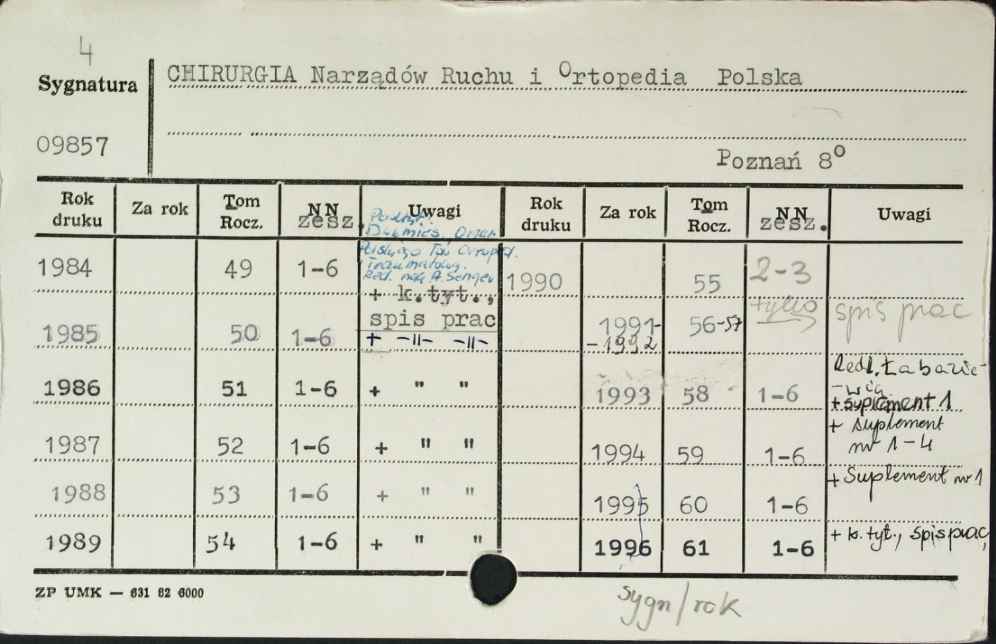 4
Sygnatura
CHIRURGIA Narządów Ruchu i Ortopedia Polska
09857
Poznań 8°
Rok druku Za rok Tom Rocz. NN zesz. Uwagi Rok druku Za rok Tom Rocz. NN zesz. Uwagi
1984 49 1-6 + k.tyt.,
1985 50 1-6 spis prac
+ -"- -"-
1986 51 1-6 + " "
1987 52 1-6 + " "
1988 53 1-6 + " "
1989 54 1-6 + " "
1990 55 2-3
tylko spis prac
1991-
-1992 56-57
1993 58 1-6 Redl. Łabazie-
-wia
+ suplement 1
1994 59 1-6 + suplement
nr 1-4
1995 60 1-6 + Suplement nr 1
1996 61 1-6 + k. tyt., spis prac,
ZP UMK — 631 82 6000
sygn/rok